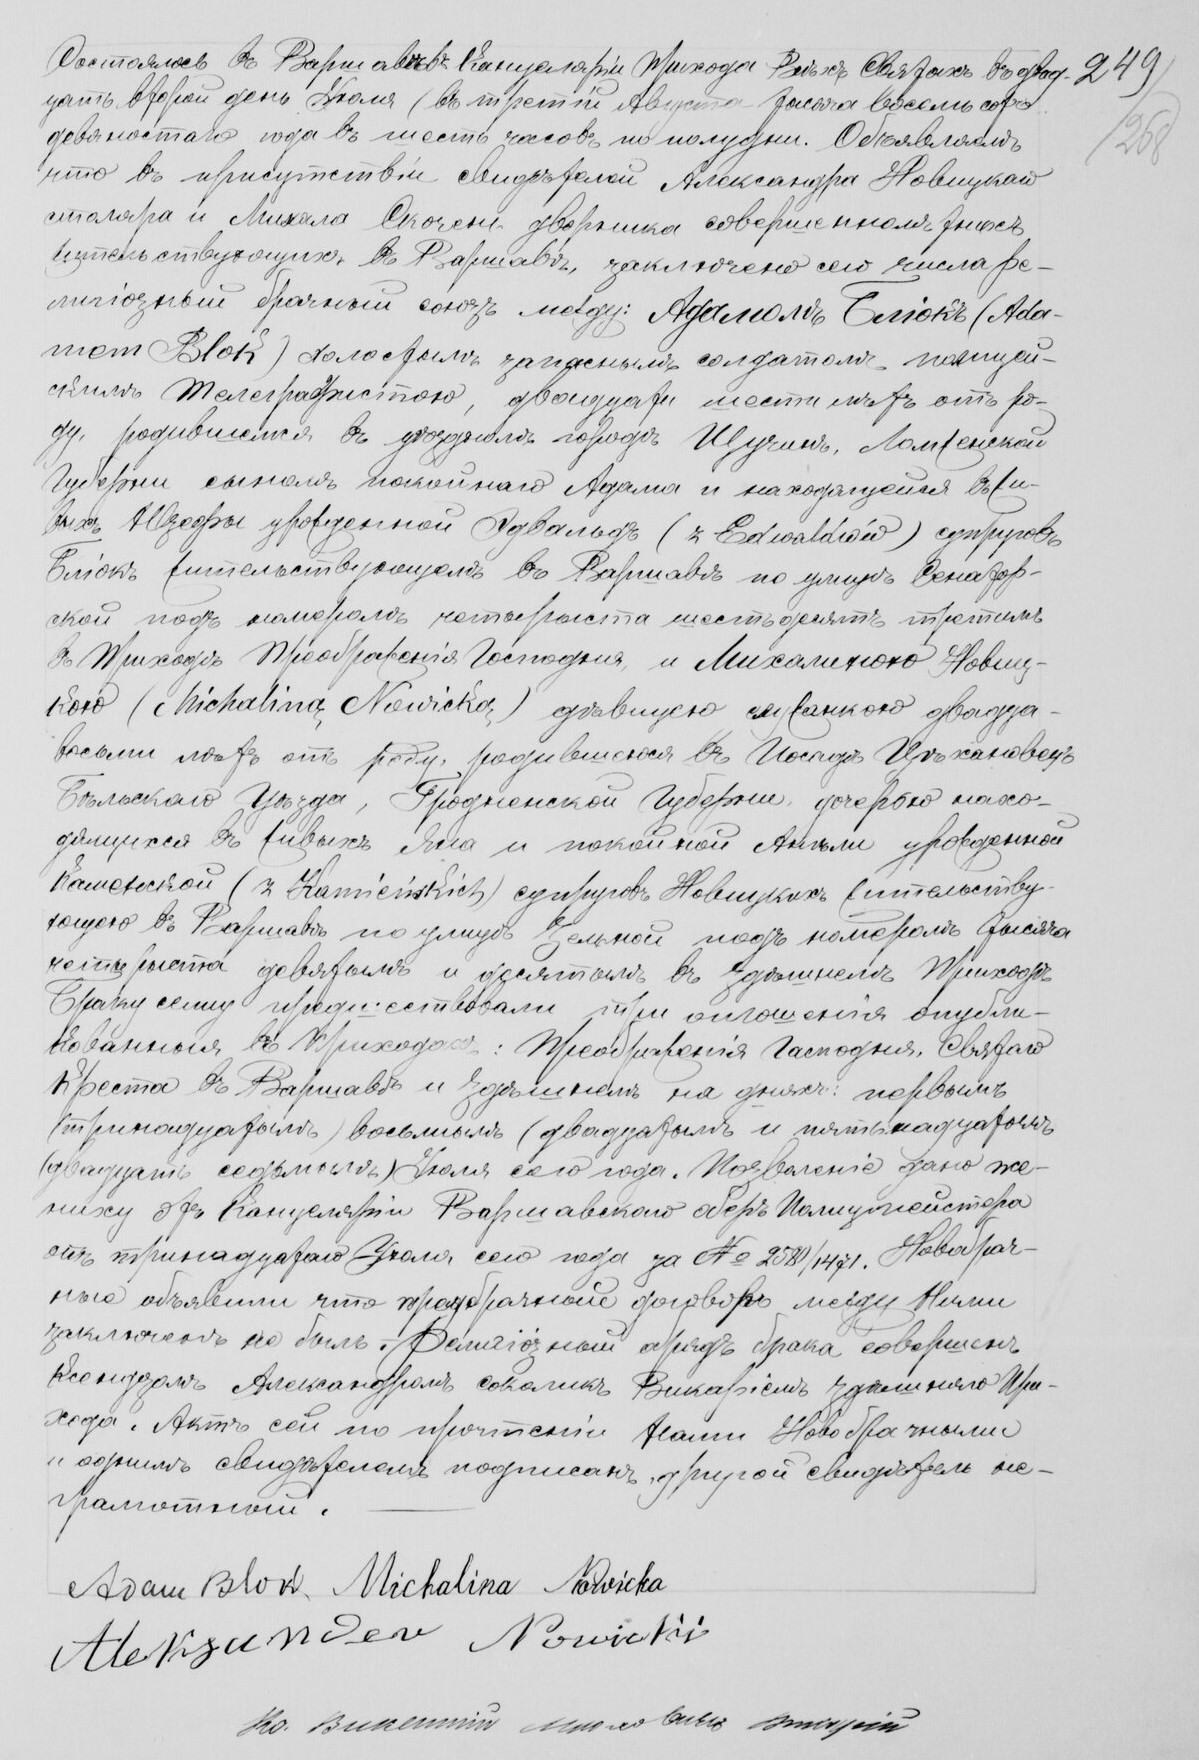 Состоялось въ Варшавѣ въ Канцеляріи Прихода Всѣхъ Святыхъ въ двад- 249
цать второй день Іюля (въ третій Августа тысяча восемь сотъ 268
девяностаго года въ шесть часовъ по полудни. Объявляемъ
что въ присутствіи свидѣтелей Александра Новицкаго
столяра и Михала Скочень дворника совершеннолѣтныхъ
жительствующихъ въ Варшавѣ, заключено сего числа ре-
лигіозный брачный союзъ между: Адамомъ Блiокъ (Ada-
mem Blok) холостымъ запаснымъ солдатомъ полицей-
скимъ Телеграфистою, двадцати шести лѣтъ отъ ро-
ду, родившемся въ уѣздномъ городѣ Щучинѣ, Ломженской
Губерніи сыномъ покойнаго Адама и находящейся въ жи-
выхъ Юзефы урожденной Эдвальдъ (z Edwaldów) супруговъ
Блiокъ жительствующемъ въ Варшавѣ по улицѣ Сенатор-
ской подъ номеромъ четыреста шестьдесятъ третимъ
въ Приходѣ Преображенія Господня, и Михалиною Новиц-
кою (Michaliną Nowicką) дѣвицею служанкою двадца-
восьми лѣтъ отъ роду, родившеюся въ Посадѣ Цѣхановецъ
Бѣльскаго Уѣзда, Гродненской Губерніи, дочерью нахо-
дящихся въ живыхъ Яна и покойной Анѣли урожденной
Каменской (z Kamieńskich) супруговъ Новицкихъ жительству-
ющею въ Варшавѣ по улицѣ Цельной подъ номеромъ тысяча
четыреста девятымъ и десятымъ въ здѣшнемъ Приходѣ
Браку сему предшествовали три оглашенія опубли-
кованныя въ Приходахъ: Преображенія Господня, Святаго
Креста въ Варшавѣ и здѣшнемъ на дняхъ: первымъ
(тринадцатымъ) восьмымъ (двадцатымъ и пятьнадцатымъ
(двадцать седьмымъ) Іюля сего года. Позволеніе дано же-
ниху отъ Канцеляріи Варшавскаго оберъ Полицмейстера
отъ тринадцатаго Іюля сего года за № 2581/1471. Новобрач-
ные объявили что предбрачный договоръ между Ними
заключенъ не былъ. Религіозный обрядъ брака совершенъ
Ксендзомъ Александромъ Соколикъ Викаріемъ здѣшняго При-
хода. Актъ сей по прочтеніи Нами Новобрачными
и однимъ свидѣтелемъ подписанъ, другой свидѣтель не-
грамотный.
Adam Blok Michalina Nowicka
Aleksander Nowicki
Кс. Викентій